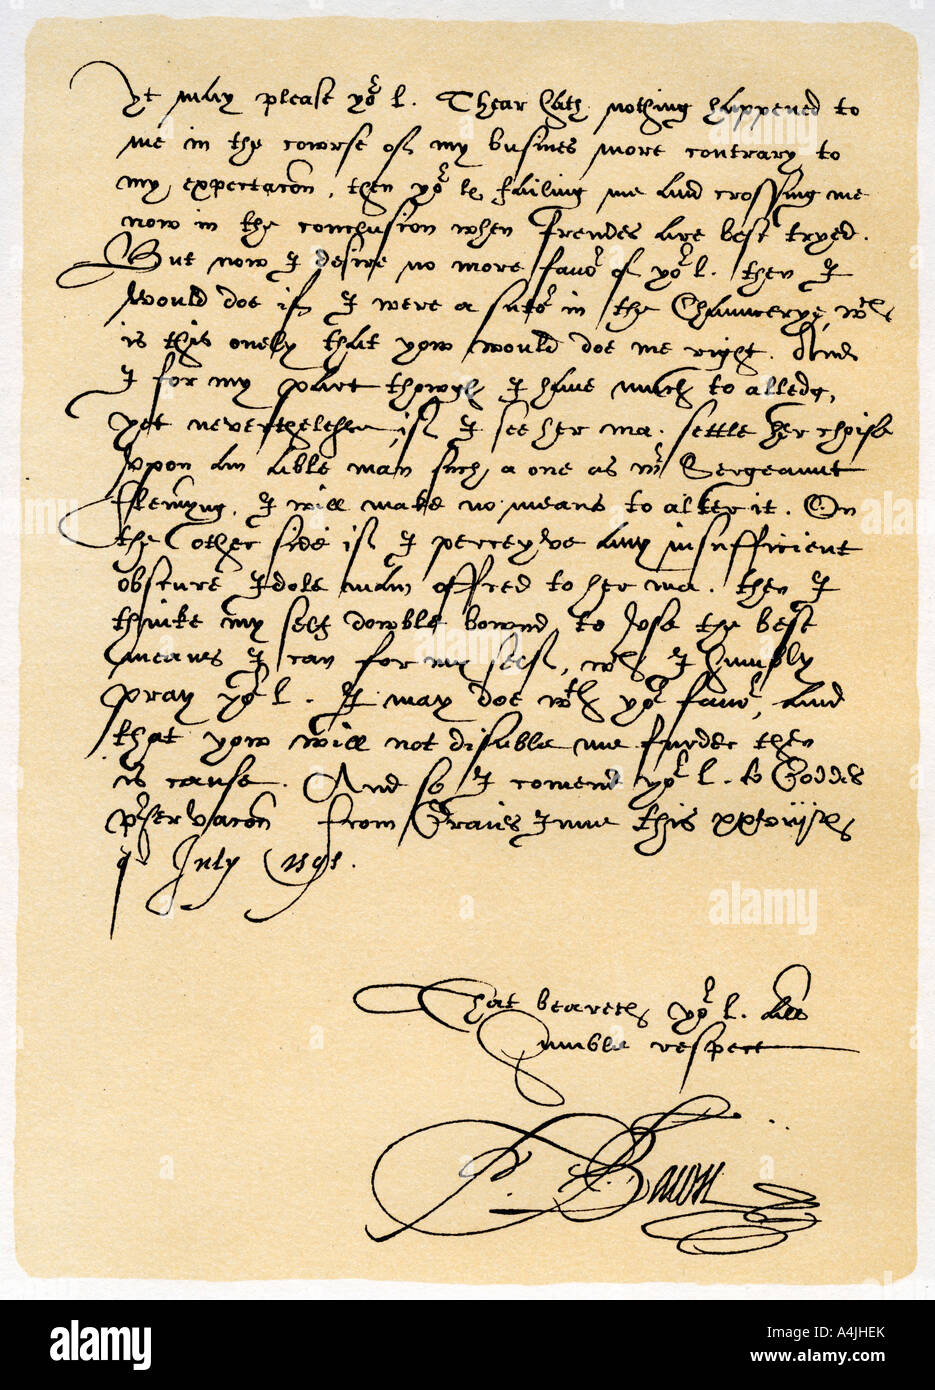 yt may please yor l. Thear hath nothing happened to
me in the cowrse of my busines more contrary to
my expectacon, then yor ls failing me and crossing me
now in the conclusion when frendes are best tryed.
But now I desire no more favor of yor l. then I
would doe if I were a sutor in the Chauncerye, wch
is this onely that yow would doe me right. And
I for my part thowgh I have much to alledg,
yet neverthelesse if I see her ma. settle her choise
vpon an able man such a one as mr Sergeaunt
Flemyng, I will make no means to alter it. On
the other side if I perceyve any insufficient
obscure Idole man offred to her ma. then I
thinke my self dowble bownd to vse the best
means I can for my self, wch I humbly
pray yor l. I may doe wth yor favor, and
that yow will not disable me furder then
is cause. And so I comend yor l. to Goddes
prservacon from Graies Inne this xxviijth
of July 1595.
That beareth yor l. all
humble respect
Fr. Bacon
alamy
Image ID: A4JHEK
www.alamy.com